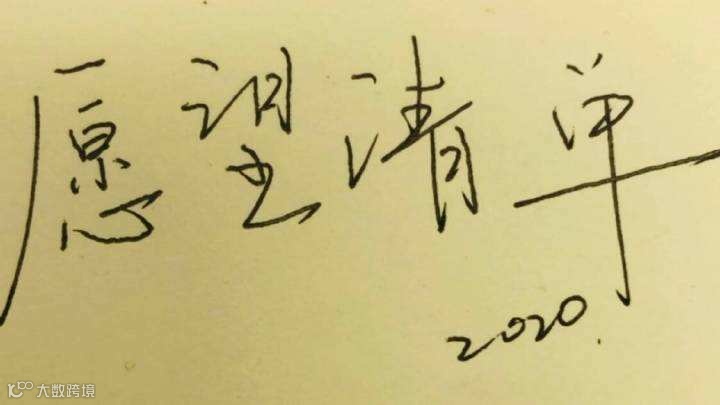 愿望清单
2020.
大数跨境